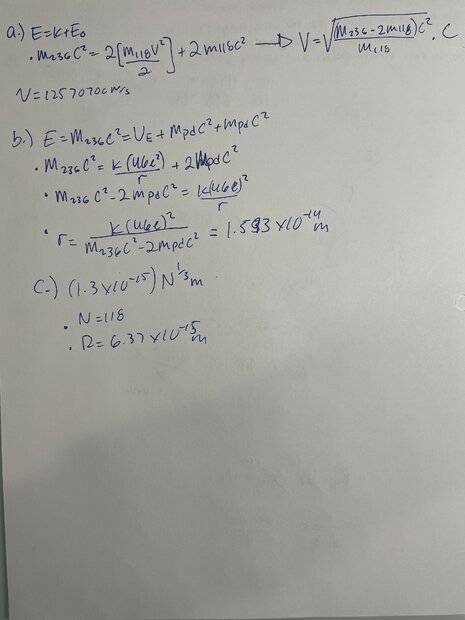 a.) E=K+E₀
• M₂₃₆C² = 2[M₁₁₈V²/2] + 2m118C² → V=√((M₂₃₆-2m118)C²/M₁₁₈) · C
V=12570700m/s
b.) E=M₂₃₆C²=U_E+MpdC²+mpdC²
• M₂₃₆C²=K(46e²)/r + 2MpdC²
• M₂₃₆C²-2mpdC²=K(46e)²/r
• r=K(46e)²/(M₂₃₆C²-2mpdC²) = 1.593×10⁻¹⁴m
C.) (1.3×10⁻¹⁵)N^(1/3)m
• N=118
• R=6.37×10⁻¹⁵m